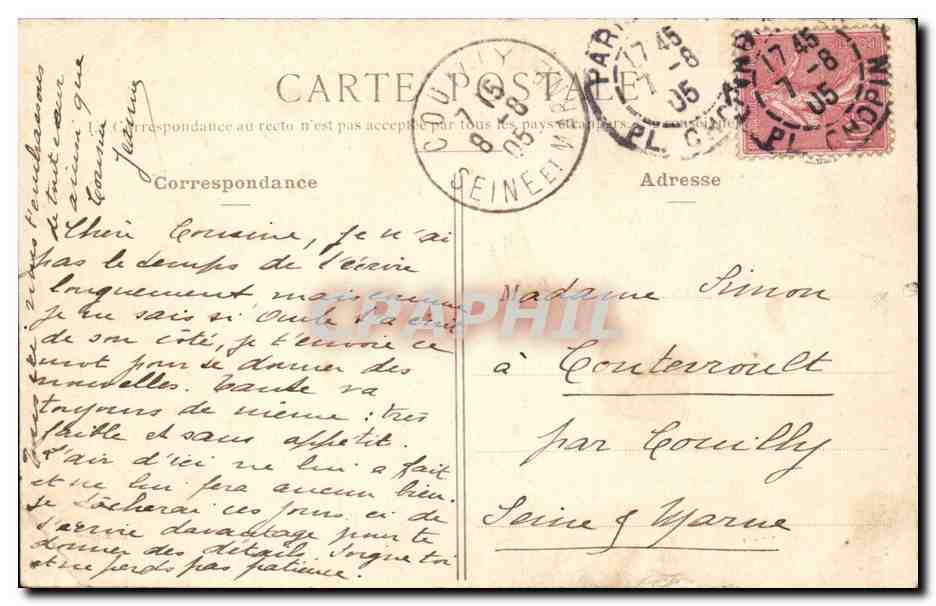 CARTE POSTALE
La Correspondance au recto n'est pas acceptée par tous les pays étrangers.
Correspondance
Chère Cousine, je n'ai
pas le temps de t'écrire
longuement mais comme
je ne sais si Oncle t'a écrit
de son côté, je t'envoie ce
mot pour te donner des
nouvelles. Tante va
toujours de même : très
faible et sans appétit.
L'air d'ici ne lui a fait
et ne lui fera aucun bien.
Je tâcherai ces jours ci de
t'écrire davantage pour te
donner des détails. Soigne toi
et ne perds pas patience.
nous t'embrassons
de tout cœur
ainsi que
Cousin
Jeanne
Adresse
Madame Simon
à Coutevroult
par Couilly
Seine & Marne
COUILLY
7-15
8 -8
05
SEINE ET MARNE
PARIS
17 45
7 -8
05
PL. CHOPIN
17 45
7 -8
05
PL. CHOPIN
CPAPHIL